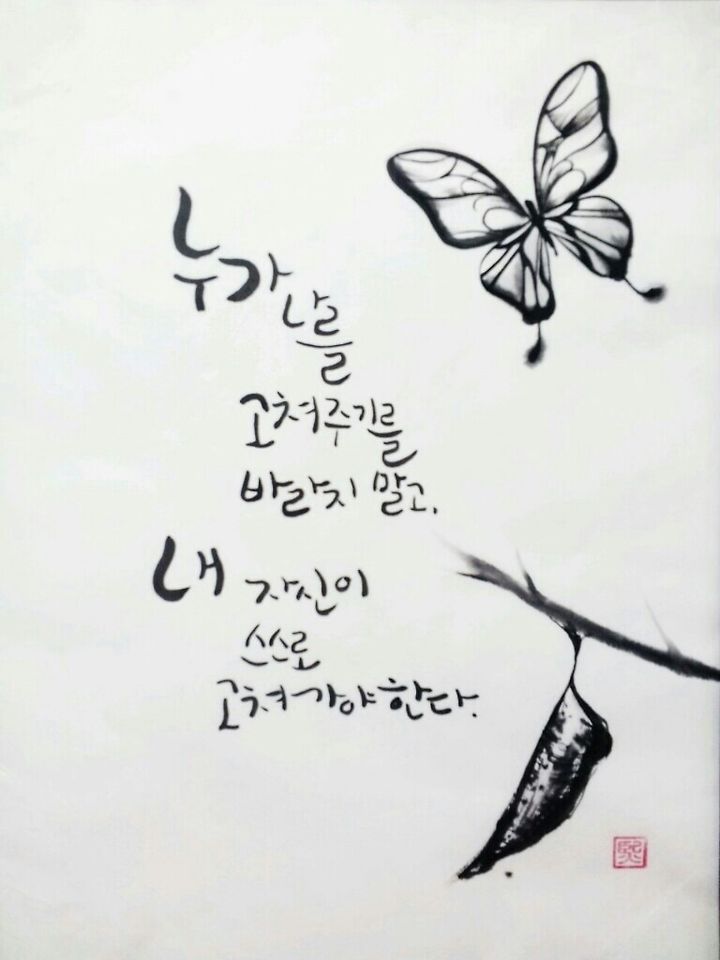 누가
나를
고쳐주기를
바라지 말고,
내 자신이
스스로
고쳐가야한다.
熙